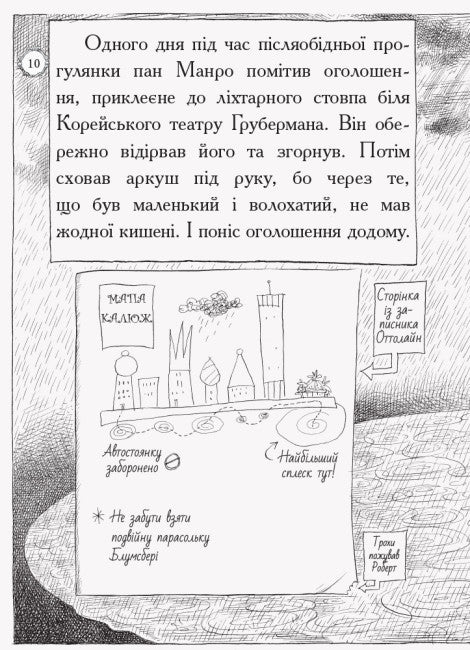 10
Одного дня під час післяобідньої про-
гулянки пан Манро помітив оголошен-
ня, приклеєне до ліхтарного стовпа біля
Корейського театру Грубермана. Він обе-
режно відірвав його та згорнув. Потім
сховав аркуш під руку, бо через те,
що був маленький і волохатий, не мав
жодної кишені. І поніс оголошення додому.
МАПА
КАЛЮЖ
Сторінка
із за-
писника
Оттолайн
Автостоянку
заборонено
Найбільший
сплеск тут!
Не забути взяти
подвійну парасольку
Блумсбері
Трохи
пожував
Роберт